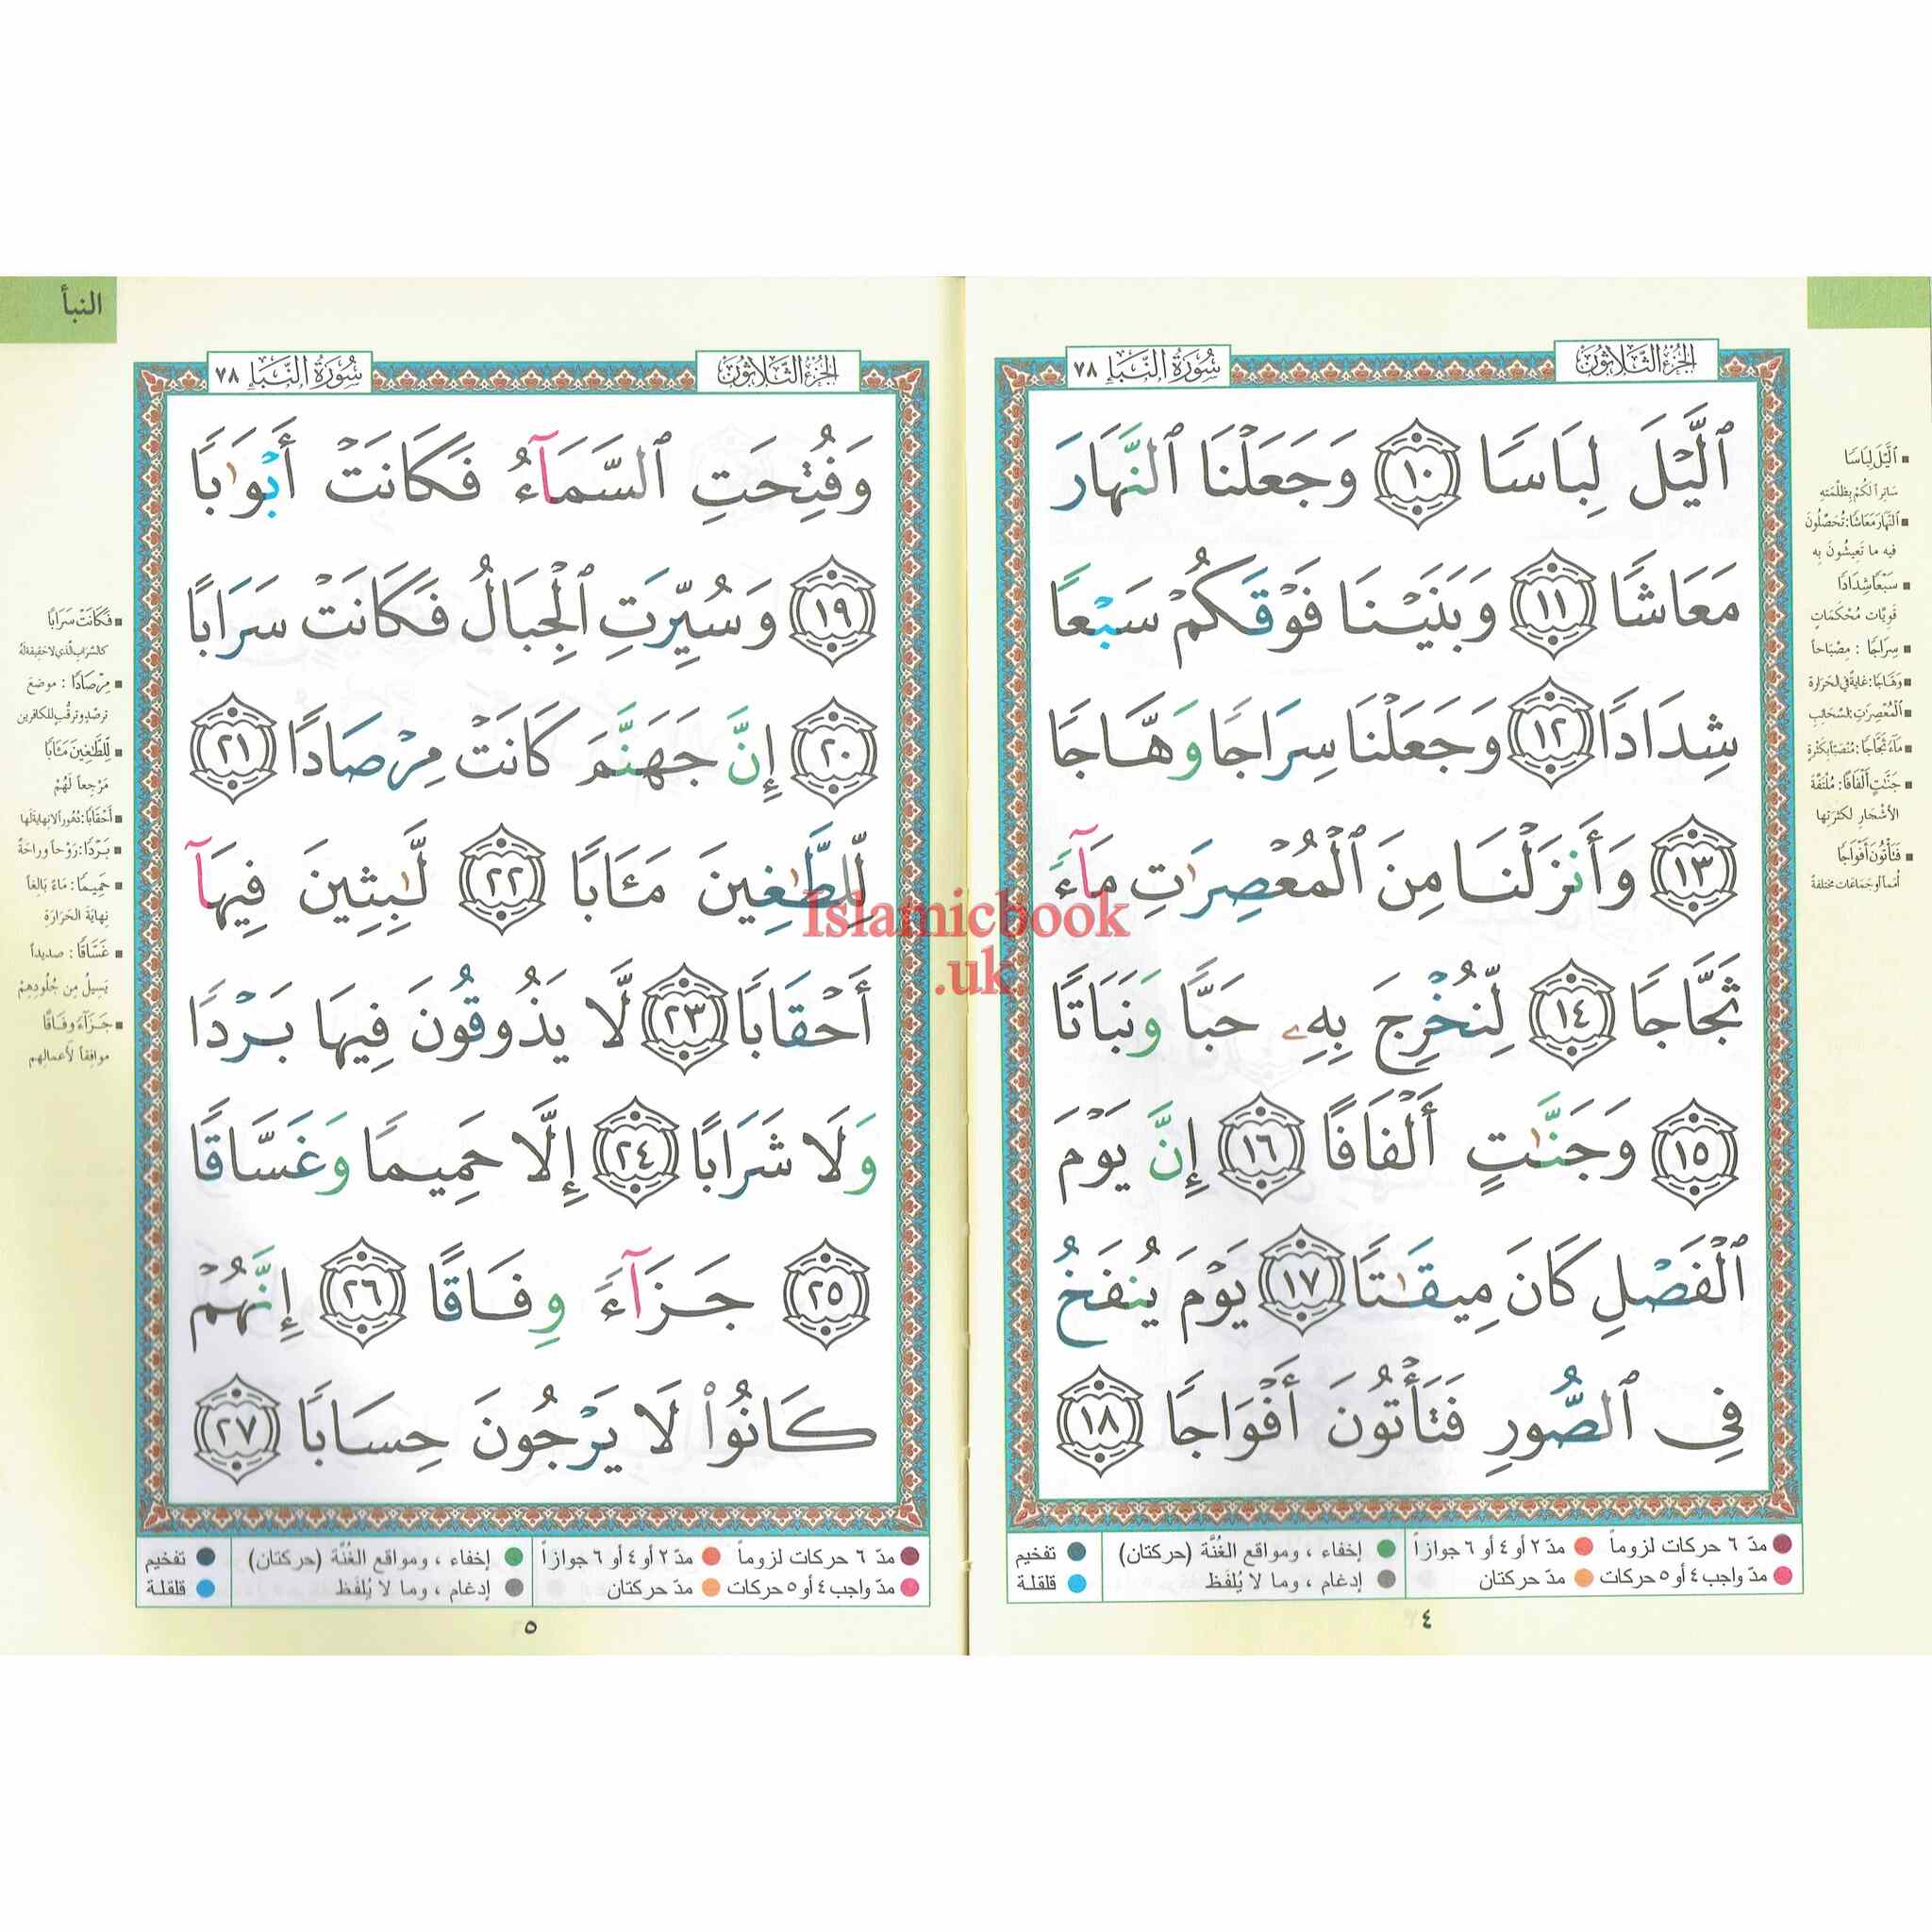 الجزء الثلاثون
سورة النبإ ٧٨
ٱلَّيۡلَ لِبَاسًا ١٠ وَجَعَلۡنَا ٱلنَّهَارَ
مَعَاشًا ١١ وَبَنَيۡنَا فَوۡقَكُمۡ سَبۡعًا
شِدَادًا ١٢ وَجَعَلۡنَا سِرَاجًا وَهَّاجًا
١٣ وَأَنزَلۡنَا مِنَ ٱلۡمُعۡصِرَٰتِ مَآءً
ثَجَّاجًا ١٤ لِّنُخۡرِجَ بِهِۦ حَبًّا وَنَبَاتًا
١٥ وَجَنَّٰتٍ أَلۡفَافًا ١٦ إِنَّ يَوۡمَ
ٱلۡفَصۡلِ كَانَ مِيقَٰتًا ١٧ يَوۡمَ يُنفَخُ
فِي ٱلصُّورِ فَتَأۡتُونَ أَفۡوَاجًا ١٨
ٱلَّيۡلَ لِبَاسًا
ساتراً لكُمْ بِظُلْمَتِهِ
النَّهَارَ مَعَاشًا: تُحَصِّلُونَ
فيه ما تَعِيشُونَ بِهِ
سَبْعًا شِدَادًا
قَوِيَّات مُحْكَمَاتٍ
سِرَاجًا : مِصْبَاحاً
وَهَّاجًا: غايةً في الحَرَارة
ٱلْمُعْصِرَٰتِ: السَّحَائِبِ
مَآءً ثَجَّاجًا: مُنْصَبّاً بِكَثْرةٍ
جَنَّٰتٍ أَلْفَافًا: مُلْتَفَّةَ
الأشْجَارِ لكثرَتِها
فَتَأْتُونَ أَفْوَاجًا
أمماً أو جماعات مختلفةً
مدّ ٦ حركات لزوماً مدّ ٢ أو ٤ أو ٦ جوازاً إخفاء ، ومواقع الغُنَّة (حركتان) تفخيم
مدّ واجب ٤ أو ٥ حركات مدّ حركتان إدغام ، وما لا يُلفَظ قلقلة
٤
النبأ
الجزء الثلاثون
سورة النبإ ٧٨
وَفُتِحَتِ ٱلسَّمَآءُ فَكَانَتۡ أَبۡوَٰبًا
١٩ وَسُيِّرَتِ ٱلۡجِبَالُ فَكَانَتۡ سَرَابًا
٢٠ إِنَّ جَهَنَّمَ كَانَتۡ مِرۡصَادًا ٢١
لِّلطَّٰغِينَ مَـَٔابًا ٢٢ لَّٰبِثِينَ فِيهَآ
أَحۡقَابًا ٢٣ لَّا يَذُوقُونَ فِيهَا بَرۡدًا
وَلَا شَرَابًا ٢٤ إِلَّا حَمِيمًا وَغَسَّاقًا
٢٥ جَزَآءً وِفَاقًا ٢٦ إِنَّهُمۡ
كَانُوا۟ لَا يَرۡجُونَ حِسَابًا ٢٧
فَكَانَتْ سَرَابًا
كالسَّرَابِ الَّذي لا حَقِيقَةَ لَهُ
مِرْصَادًا : موضعَ
ترصُّدٍ وترقُّبٍ للكافرين
لِّلطَّٰغِينَ مَـَٔابًا
مَرْجِعاً لَهُمْ
أَحْقَابًا: دُهُوراً لا نِهايةَ لها
بَرْدًا: رَوْحاً وراحةً
حَمِيمًا: مَاءً بَالِغاً
نِهايَةَ الحَرَارَةِ
غَسَّاقًا : صديداً
يَسِيلُ مِن جُلُودِهِمْ
جَزَآءً وِفَاقًا
موافِقاً لأعمالِهِم
مدّ ٦ حركات لزوماً مدّ ٢ أو ٤ أو ٦ جوازاً إخفاء ، ومواقع الغُنَّة (حركتان) تفخيم
مدّ واجب ٤ أو ٥ حركات مدّ حركتان إدغام ، وما لا يُلفَظ قلقلة
٥
Islamicbook
.uk